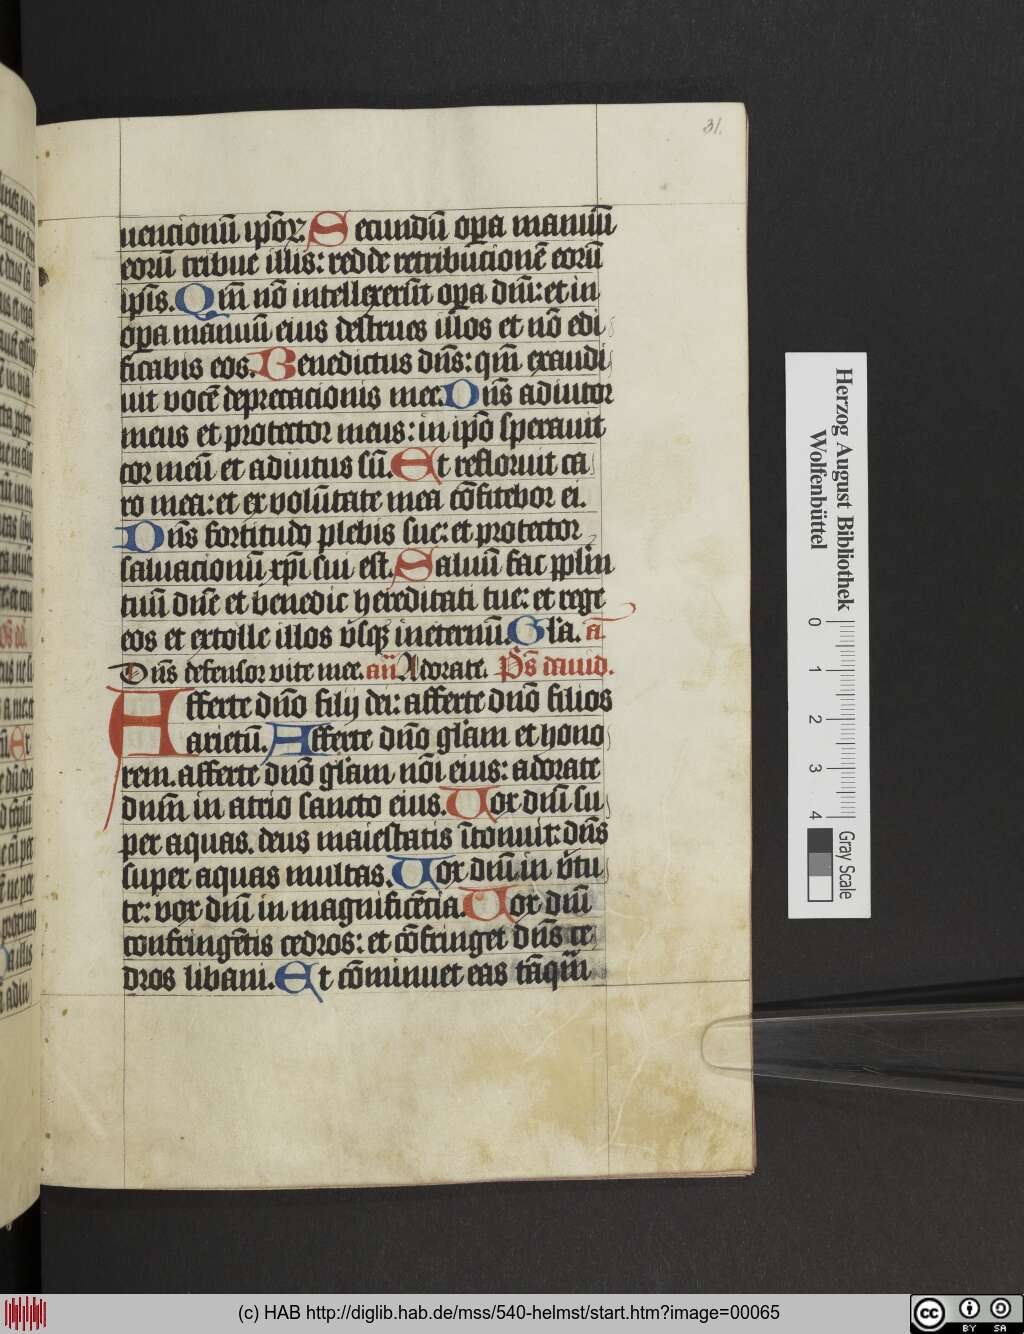 31.
uencionū ipōꝝ. Secundū oꝑa manuū
eorū tribue illis: redde retribucionē eorū
ipsis. Qm̄ nō intellexerūt oꝑa dn̄i: et in
oꝑa manuū eius destrues illos et nō edi
ficabis eos. Benedictus dn̄s: qm̄ exaudi
uit vocē deprecacionis mee. Dn̄s adiutor
meus et protector meus: in ipō sperauit
cor meū et adiutus sū. Et refloruit ca
ro mea: et ex volūtate mea cōfitebor ei.
Dn̄s fortitudo plebis sue: et protector
saluacionū xp̄i sui est. Saluū fac pplm̄
tuū dn̄e et benedic hereditati tue: et rege
eos et extolle illos vsqꝫ ineternū. Gl̄a. a᷒
Dn̄s defensor vite mee. an̄ Adorate. Ps̄ dauid.
Afferte dn̄o filij dei: afferte dn̄o filios
arietū. Afferte dn̄o gl̄am et hono
rem. afferte dn̄o gl̄am nōi eius: adorate
dn̄m in atrio sancto eius. Vox dn̄i su
per aquas. deus maiestatis ītonuit: dn̄s
super aquas multas. Vox dn̄i in v̄tu
te: vox dn̄i in magnificēcia. Vox dn̄i
confringētis cedros: et cōfringet dn̄s ce
dros libani. Et cōminuet eas tāqm̄
Herzog August Bibliothek
Wolfenbüttel
0 1 2 3 4
Gray Scale
(c) HAB http://diglib.hab.de/mss/540-helmst/start.htm?image=00065
cc BY SA